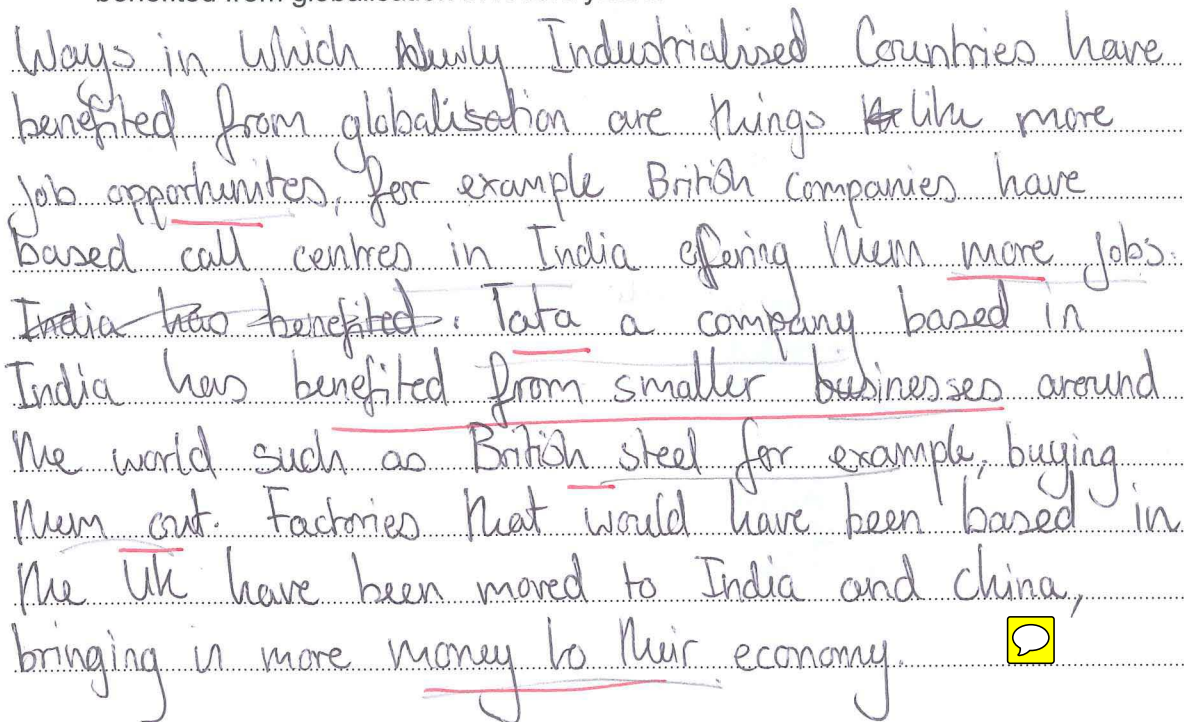 benefited from globalisation
Ways in Which Newly Industrialised Countries have
benefited from globalisation are things like more
job opportunites, for example British Companies have
based call centres in India offering them more jobs.
India has benefited. Tata a company based in
India has benefited from smaller businesses around
the world such as British steel for example, buying
them out. Factories that would have been based in
the Uk have been moved to India and China,
bringing in more money to their economy.